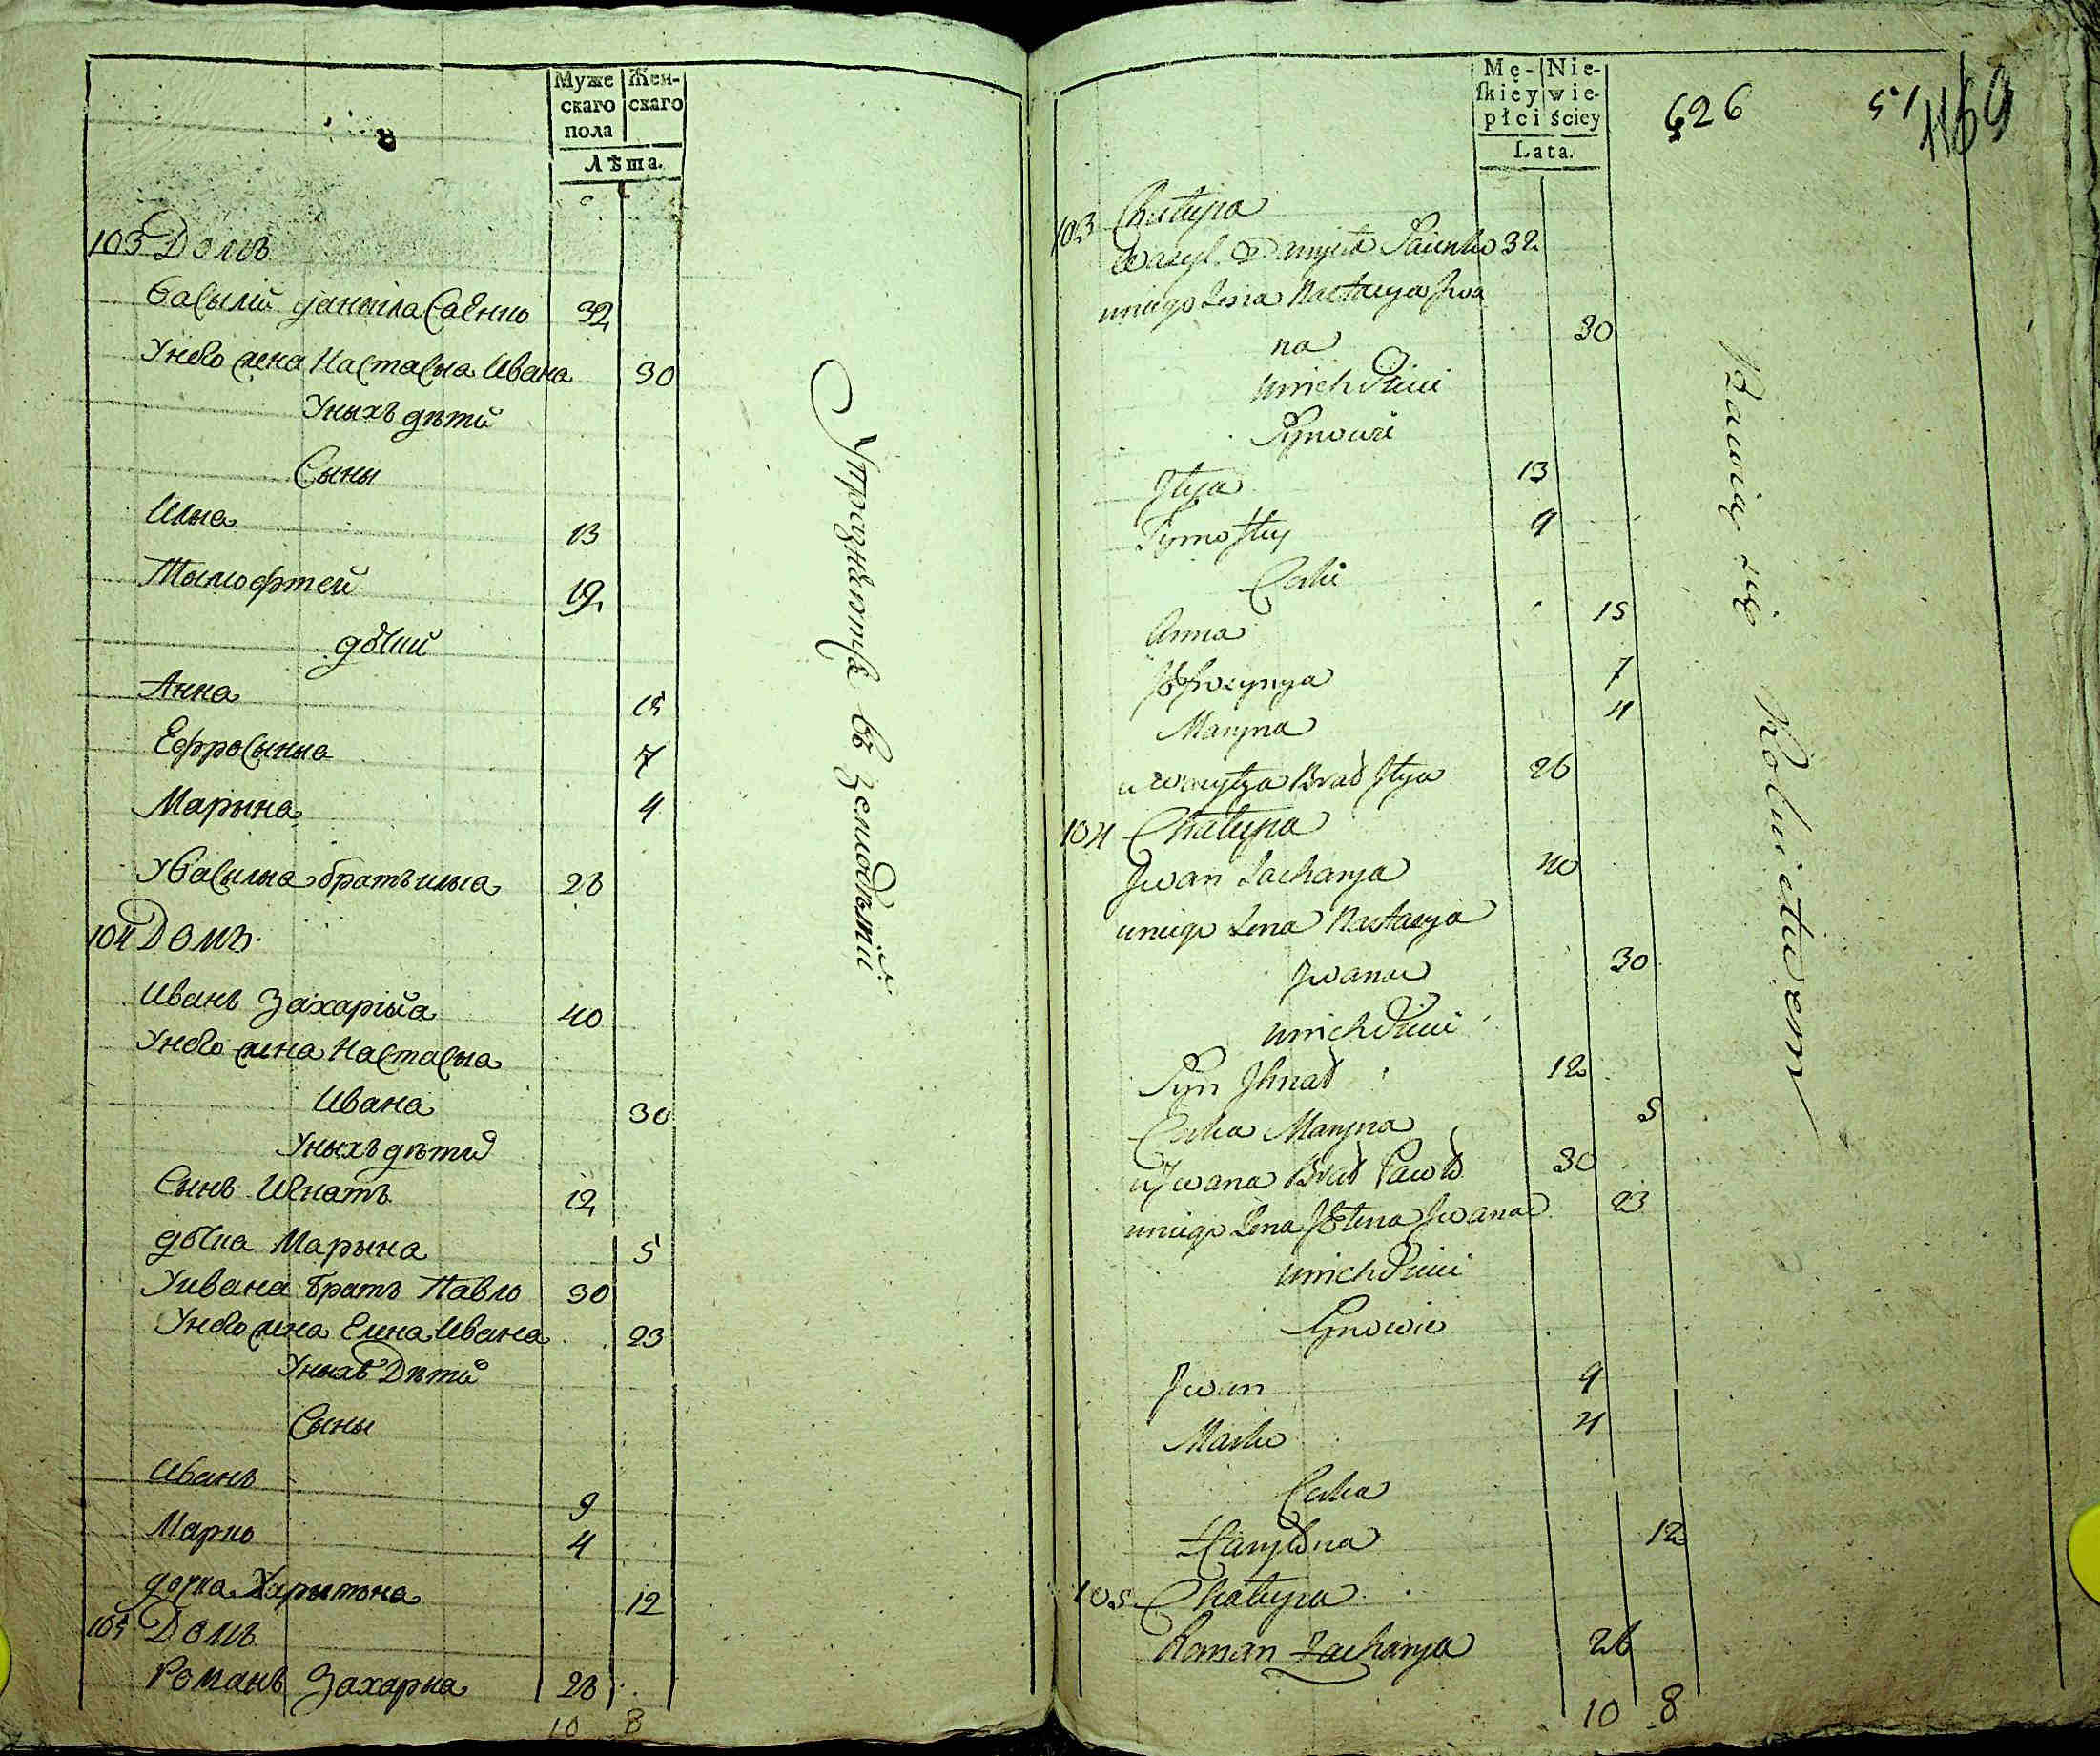 Муже Жен-
скаго скаго
пола
Лѣта.
103 Домъ
васылій данила Савнко 32
Унего жена Настасыа Ивана 30
Уныхъ дѣти
Сыны
Илыа 13
Тымофтей 12
дочки
Анна 15
Ефросыныа 7
Марына 4
Увасылыа братъ илыа 26
104 Домъ
Иванъ Захаріиа 40
Унего жена Настасыа
Ивана 30
Уныхъ дѣти
Сынъ Игнатъ 12
дочка Марына 5
Уивана братъ Павло 30
Унего жена Елена Ивана 23
Уныхъ Дѣти
Сыны
Иванъ 9
Марко 4
дочка Харытына 12
105 Домъ
Романъ Захарыа 26
10 8
Упражняютца въ Земледѣліи
Mę- Nie-
skiey wie-
płci ściey
Lata.
626
1169
103 Chałupa
Wasyl Danyła Sawnko 32
uniego Żona Nastasya Iwa
na 30
unich Dzieci
Synowie
Ilya 13
Tymoftey 9
Corki
Anna 15
Jefrosynya 7
Maryna 4
u Wasylya Brat Ilya 26
104 Chałupa
Iwan Zacharya 40
uniego Żona Nastasya
Iwana 30
unich Dzieci
Syn Ihnat 12
Corka Maryna 5
u Iwana Brat Pawło 30
uniego Żona Jełena Iwana 23
unich Dzieci
Synowie
Iwan 9
Marko 4
Corka
Harytyna 12
105 Chałupa
Roman Zacharya 26
10 8
Bawią się Rolnictwem